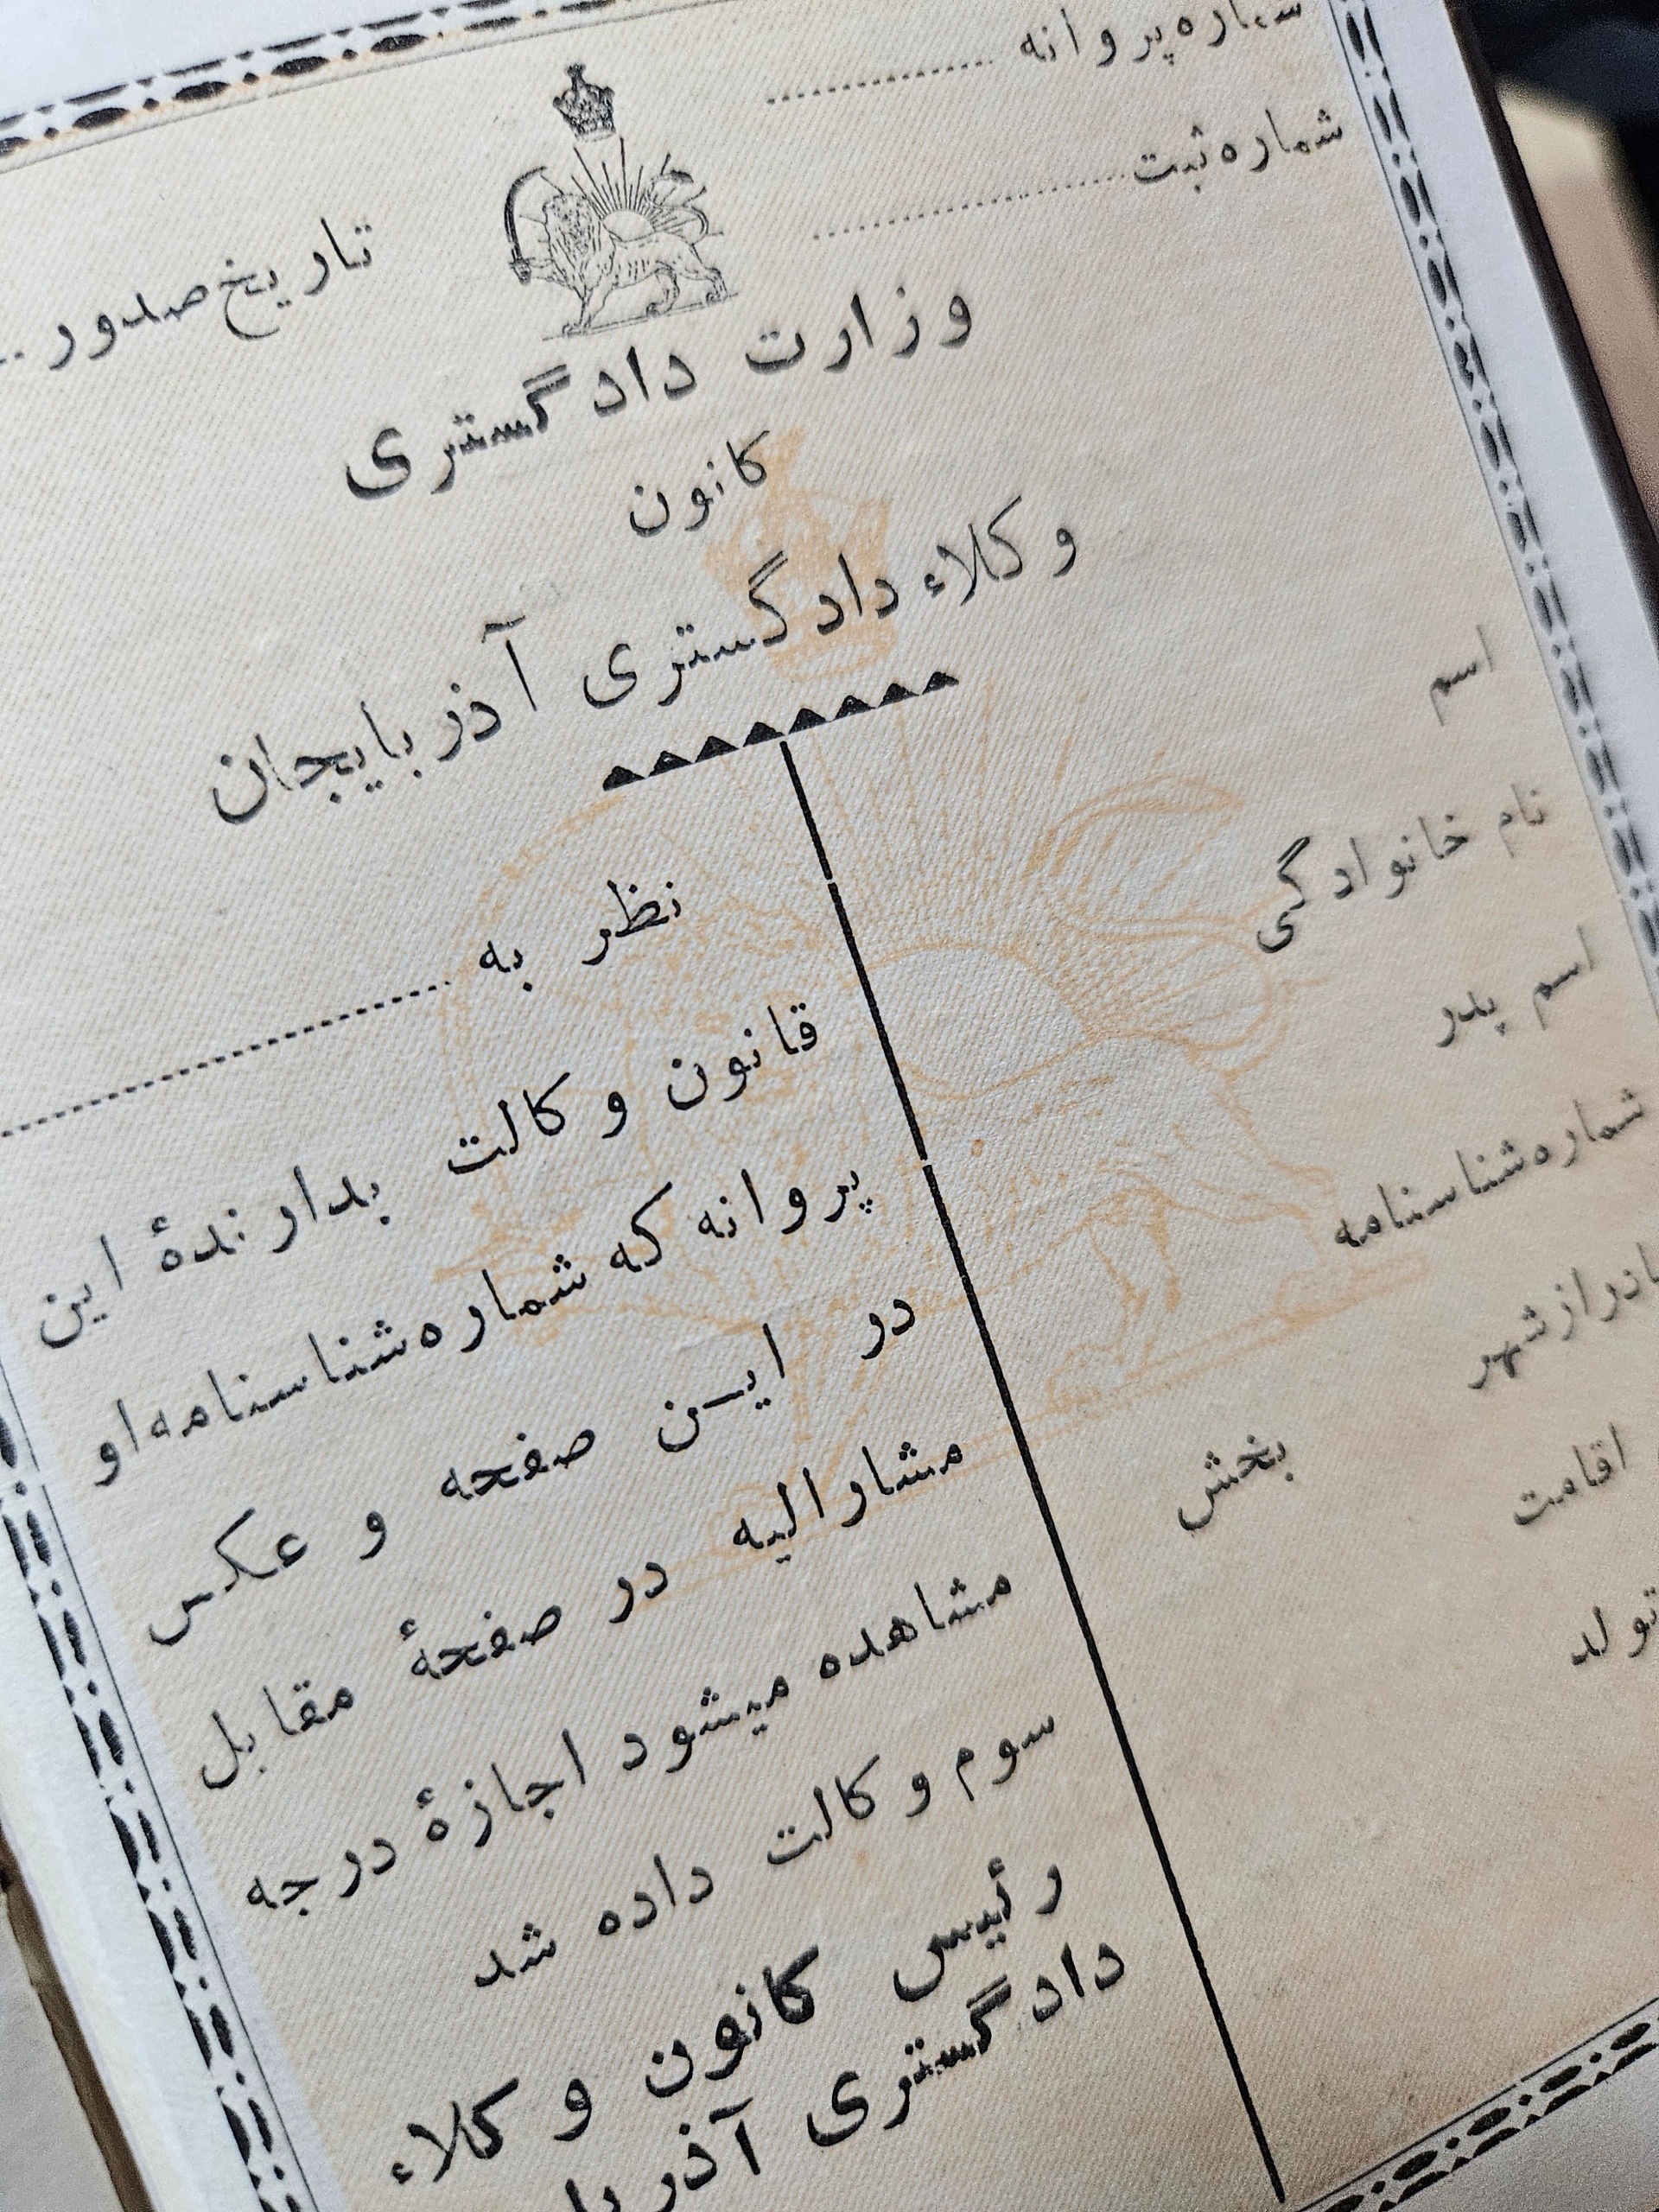 شماره پروانه
شماره ثبت
تاریخ صدور
وزارت دادگستری
کانون
وکلاء دادگستری آذربایجان
اسم
نام خانوادگی
اسم پدر
شماره شناسنامه
صادر از شهر
اقامت بخش
تولد
نظر به
قانون وکالت بدارندهٔ این
پروانه که شماره شناسنامه او
در این صفحه و عکس
مشارالیه در صفحهٔ مقابل
مشاهده میشود اجازهٔ درجه
سوم وکالت داده شد
رئیس کانون وکلاء
دادگستری